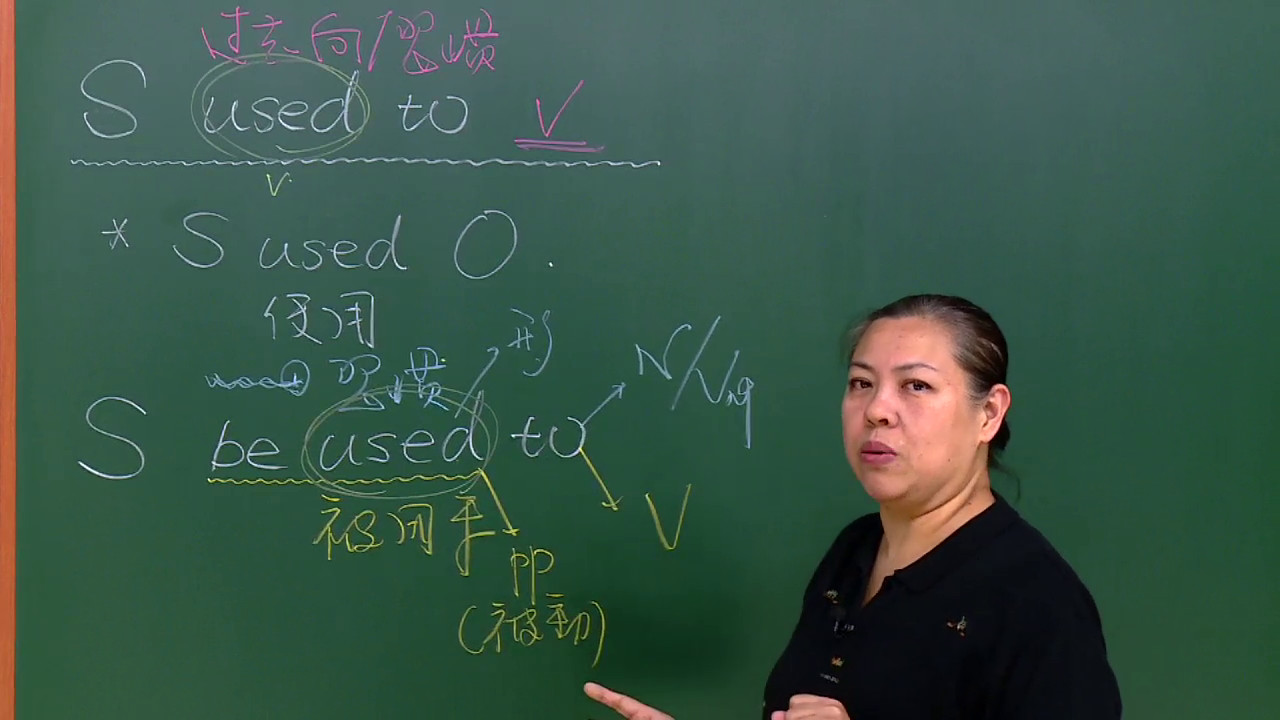 过去向/習慣
S used to V
V
* S used O.
使用
習慣 形
S be used to N/Ving
被用于 V
pp
(被動)